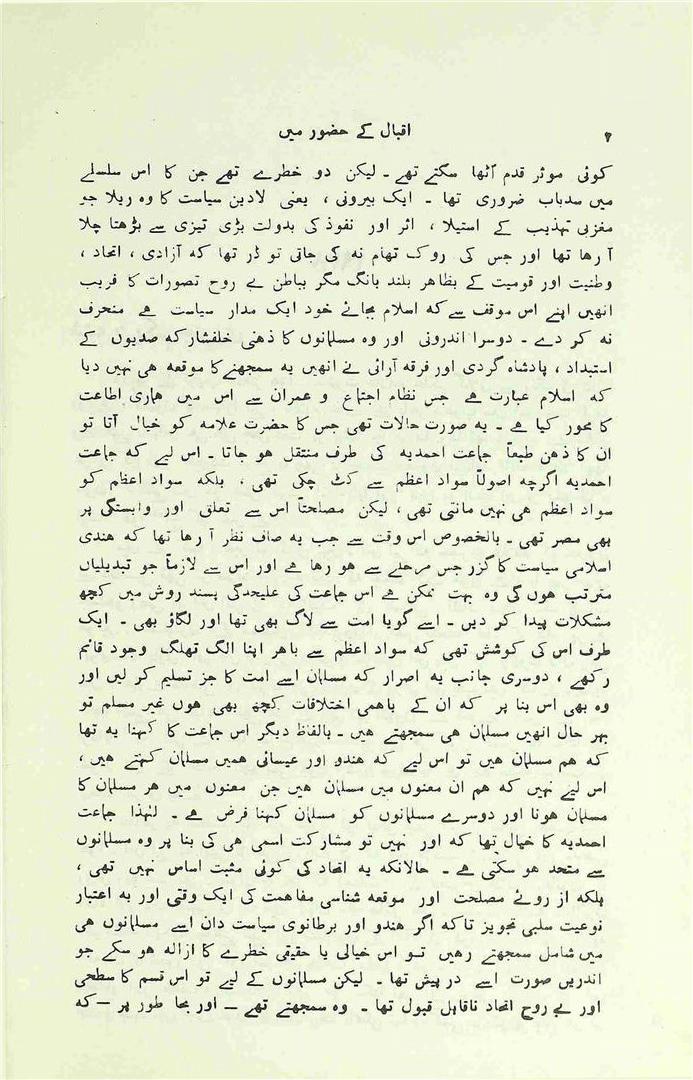 اقبال کے حضور میں
کوئی موثر قدم اٹھا سکتے تھے ۔ لیکن دو خطرے تھے جن کا اس سلسلے
میں سدباب ضروری تھا ۔ ایک بیرونی ، یعنی لادین سیاست کا وہ ریلا جو
مغربی تہذیب کے استیلا ، اثر اور نفوذ کی بدولت بڑی تیزی سے بڑھتا چلا
آ رہا تھا اور جس کی روک تھام نہ کی جاتی تو ڈر تھا کہ آزادی ، اتحاد ،
وطنیت اور قومیت کے بظاہر بلند بانگ مگر بباطن بے روح تصورات کا فریب
انھیں اپنے اس موقف سے کہ اسلام بجائے خود ایک مدار سیاست ہے منحرف
نہ کر دے ۔ دوسرا اندرونی اور وہ مسلمانوں کا ذہنی خلفشار کہ صدیوں کے
استبداد ، پادشاہ گردی اور فرقہ آرائی نے انھیں یہ سمجھنے کا موقعہ ہی نہیں دیا
کہ اسلام عبارت ہے جس نظام اجتماع و عمران سے اس میں ہماری اطاعت
کا محور کیا ہے ۔ یہ صورت حالات تھی جس کا حضرت علامہ کو خیال آتا تو
ان کا ذہن طبعاً جماعت احمدیہ کی طرف منتقل ہو جاتا ۔ اس لیے کہ جماعت
احمدیہ اگرچہ اصولاً سواد اعظم سے کٹ چکی تھی ، بلکہ سواد اعظم کو
سواد اعظم ہی نہیں مانتی تھی ، لیکن مصلحتاً اس سے تعلق اور وابستگی پر
بھی مصر تھی ۔ بالخصوص اس وقت سے جب یہ صاف نظر آ رہا تھا کہ ہندی
اسلامی سیاست کا گزر جس مرحلے سے ہو رہا ہے اور اس سے لازماً جو تبدیلیاں
مترتب ہوں گی وہ بہت ممکن ہے اس جماعت کی علیحدگی پسند روش میں کچھ
مشکلات پیدا کر دیں ۔ اسے گویا امت سے لاگ بھی تھا اور لگاؤ بھی ۔ ایک
طرف اس کی کوشش تھی کہ سواد اعظم سے باہر اپنا الگ تھلگ وجود قائم
رکھے ، دوسری جانب یہ اصرار کہ مسلمان اسے امت کا جز تسلیم کر لیں اور
وہ بھی اس بنا پر کہ ان کے باہمی اختلافات کچھ بھی ہوں غیر مسلم تو
بہر حال انھیں مسلمان ہی سمجھتے ہیں ۔ بالفاظ دیگر اس جماعت کا کہنا یہ تھا
کہ ہم مسلمان ہیں تو اس لیے کہ ہندو اور عیسائی ہمیں مسلمان کہتے ہیں ،
اس لیے نہیں کہ ہم ان معنوں میں مسلمان ہیں جن معنوں میں ہر مسلمان کا
مسلمان ہونا اور دوسرے مسلمانوں کو مسلمان کہنا فرض ہے ۔ لہٰذا جماعت
احمدیہ کا خیال تھا کہ اور نہیں تو مشارکت اسمی ہی کی بنا پر وہ مسلمانوں
سے متحد ہو سکتی ہے ۔ حالانکہ یہ اتحاد کی کوئی مثبت اساس نہیں تھی ،
بلکہ از روئے مصلحت اور موقعہ شناسی مفاہمت کی ایک وقتی اور بہ اعتبار
نوعیت سلبی تجویز تاکہ اگر ہندو اور برطانوی سیاست دان اسے مسلمانوں ہی
میں شامل سمجھتے رہیں تو اس خیالی یا حقیقی خطرے کا ازالہ ہو سکے جو
اندریں صورت اسے در پیش تھا ۔ لیکن مسلمانوں کے لیے تو اس قسم کا سطحی
اور بے روح اتحاد ناقابل قبول تھا ۔ وہ سمجھتے تھے — اور بجا طور پر — کہ